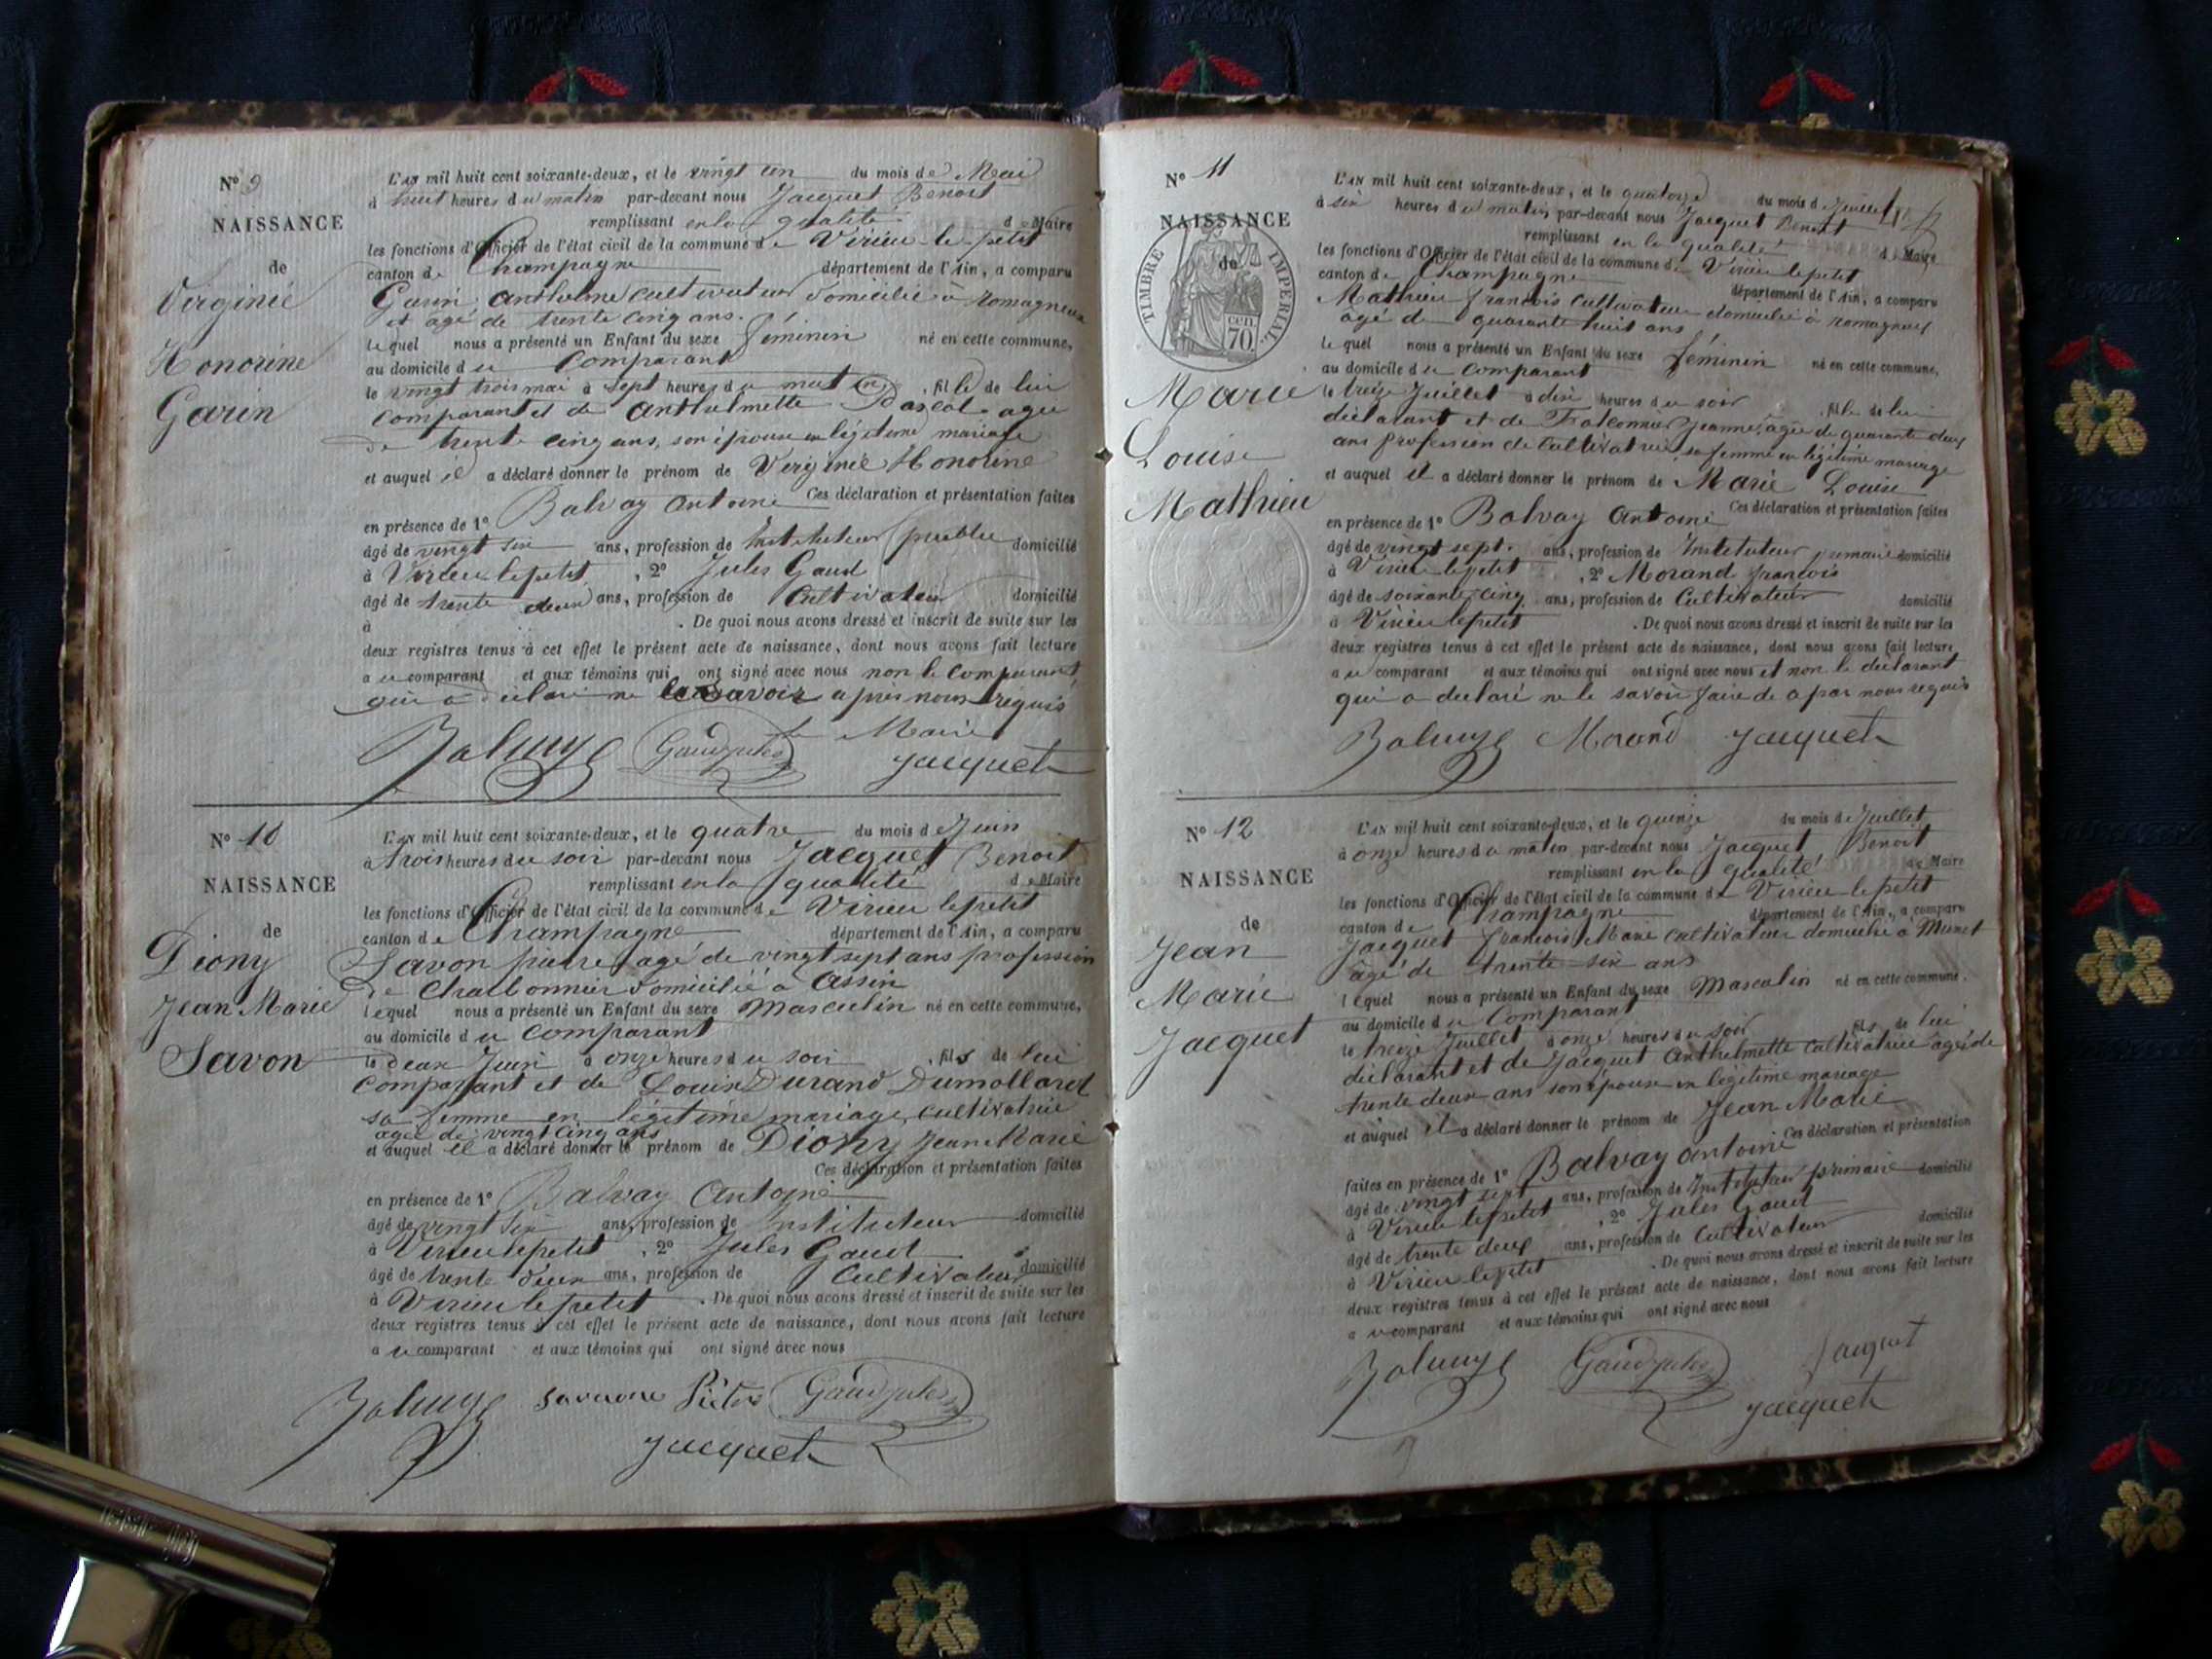 N° 9
NAISSANCE
de
Virginie
Honorine
Garin
L'an mil huit cent soixante-deux, et le vingt un du mois de Mai
à huit heures du matin par-devant nous Jacquet Benoit
remplissant en la qualité de Maire
les fonctions d'Officier de l'état civil de la commune de Virieu le petit
canton de Champagne département de l'Ain, a comparu
Garin Anthelme cultivateur domicilié à romagneux
et agé de trente cinq ans.
lequel nous a présenté un Enfant du sexe féminin né en cette commune,
au domicile du Comparant
le vingt trois mai à sept heures du matin, fille de lui
comparant et de Anthelmette Pascal agée
de trente cinq ans, son épouse en légitime mariage
et auquel il a déclaré donner le prénom de Virginie Honorine
Ces déclaration et présentation faites
en présence de 1° Balvay Antoine
âgé de vingt six ans, profession de Instituteur public domicilié
à Virieu le petit, 2° Jules Gaud
âgé de trente deux ans, profession de Cultivateur domicilié
à . De quoi nous avons dressé et inscrit de suite sur les
deux registres tenus à cet effet le présent acte de naissance, dont nous avons fait lecture
au comparant et aux témoins qui ont signé avec nous non le Comparant
qui a déclaré ne le savoir après nous requis
le Maire
Balvay Gaud jules Jacquet
N° 10
NAISSANCE
de
Diony
Jean Marie
Savon
L'an mil huit cent soixante-deux, et le quatre du mois de Juin
à trois heures du soir par-devant nous Jacquet Benoit
remplissant en la qualité de Maire
les fonctions d'Officier de l'état civil de la commune de Virieu le petit
canton de Champagne département de l'Ain, a comparu
Savon pierre agé de vingt sept ans profession
de Charbonnier domicilié à Assin
lequel nous a présenté un Enfant du sexe Masculin né en cette commune,
au domicile du Comparant
le deux Juin à onze heures du soir, fils de lui
Comparant et de Durand Dumollard
sa femme en légitime mariage, cultivatrice
agée de vingt cinq ans
et auquel il a déclaré donner le prénom de Diony Jean Marie
Ces déclaration et présentation faites
en présence de 1° Balvay Antoine
âgé de vingt six ans, profession de Instituteur domicilié
à Virieu le petit, 2° Jules Gaud
âgé de trente deux ans, profession de Cultivateur domicilié
à Virieu le petit. De quoi nous avons dressé et inscrit de suite sur les
deux registres tenus à cet effet le présent acte de naissance, dont nous avons fait lecture
au comparant et aux témoins qui ont signé avec nous
Balvay Gaud jules
Jacquet
N° 11
NAISSANCE
de
TIMBRE IMPERIAL
70 cen
Marie
Louise
Mathieu
L'an mil huit cent soixante-deux, et le quatorze du mois de Juillet
à six heures du matin par-devant nous Jacquet Benoit
remplissant en la qualité de Maire
les fonctions d'Officier de l'état civil de la commune de Virieu le petit
canton de Champagne département de l'Ain, a comparu
Mathieu françois Cultivateur domicilié à romagneux
agé de quarante huit ans
lequel nous a présenté un Enfant du sexe féminin né en cette commune,
au domicile du comparant
le treize Juillet à dix heures du soir, fille de lui
déclarant et de Falconnier Jeanne, agée de quarante deux
ans profession de Cultivatrice, sa femme en légitime mariage
et auquel il a déclaré donner le prénom de Marie Louise
Ces déclaration et présentation faites
en présence de 1° Balvay Antoine
âgé de vingt sept. ans, profession de Instituteur primaire domicilié
à Virieu le petit, 2° Morand françois
âgé de soixante cinq ans, profession de Cultivateur domicilié
à Virieu le petit. De quoi nous avons dressé et inscrit de suite sur les
deux registres tenus à cet effet le présent acte de naissance, dont nous avons fait lecture
au comparant et aux témoins qui ont signé avec nous et non le déclarant
qui a déclaré ne le savoir faire de a par nous requis
Balvay Morand Jacquet
N° 12
NAISSANCE
de
Jean
Marie
Jacquet
L'an mil huit cent soixante-deux, et le quinze du mois de Juillet
à onze heures du matin par-devant nous Jacquet Benoit
remplissant en la qualité de Maire
les fonctions d'Officier de l'état civil de la commune de Virieu le petit
canton de Champagne département de l'Ain, a comparu
Jacquet françois Marie cultivateur domicilié à Munet
agé de trente six ans
lequel nous a présenté un Enfant du sexe Masculin né en cette commune.
au domicile du Comparant
le treize Juillet à onze heures du soir fils de lui
déclarant et de Jacquet Anthelmette Cultivatrice agée de
trente deux ans son épouse en légitime mariage
et auquel il a déclaré donner le prénom de Jean Marie
Ces déclaration et présentation
faites en présence de 1° Balvay Antoine
âgé de vingt sept ans, profession de Instituteur primaire domicilié
à Virieu le petit, 2° Jules Gaud
âgé de trente deux ans, profession de Cultivateur domicilié
à Virieu le petit. De quoi nous avons dressé et inscrit de suite sur les
deux registres tenus à cet effet le présent acte de naissance, dont nous avons fait lecture
au comparant et aux témoins qui ont signé avec nous
Balvay Gaud jules Jaquet
Jacquet